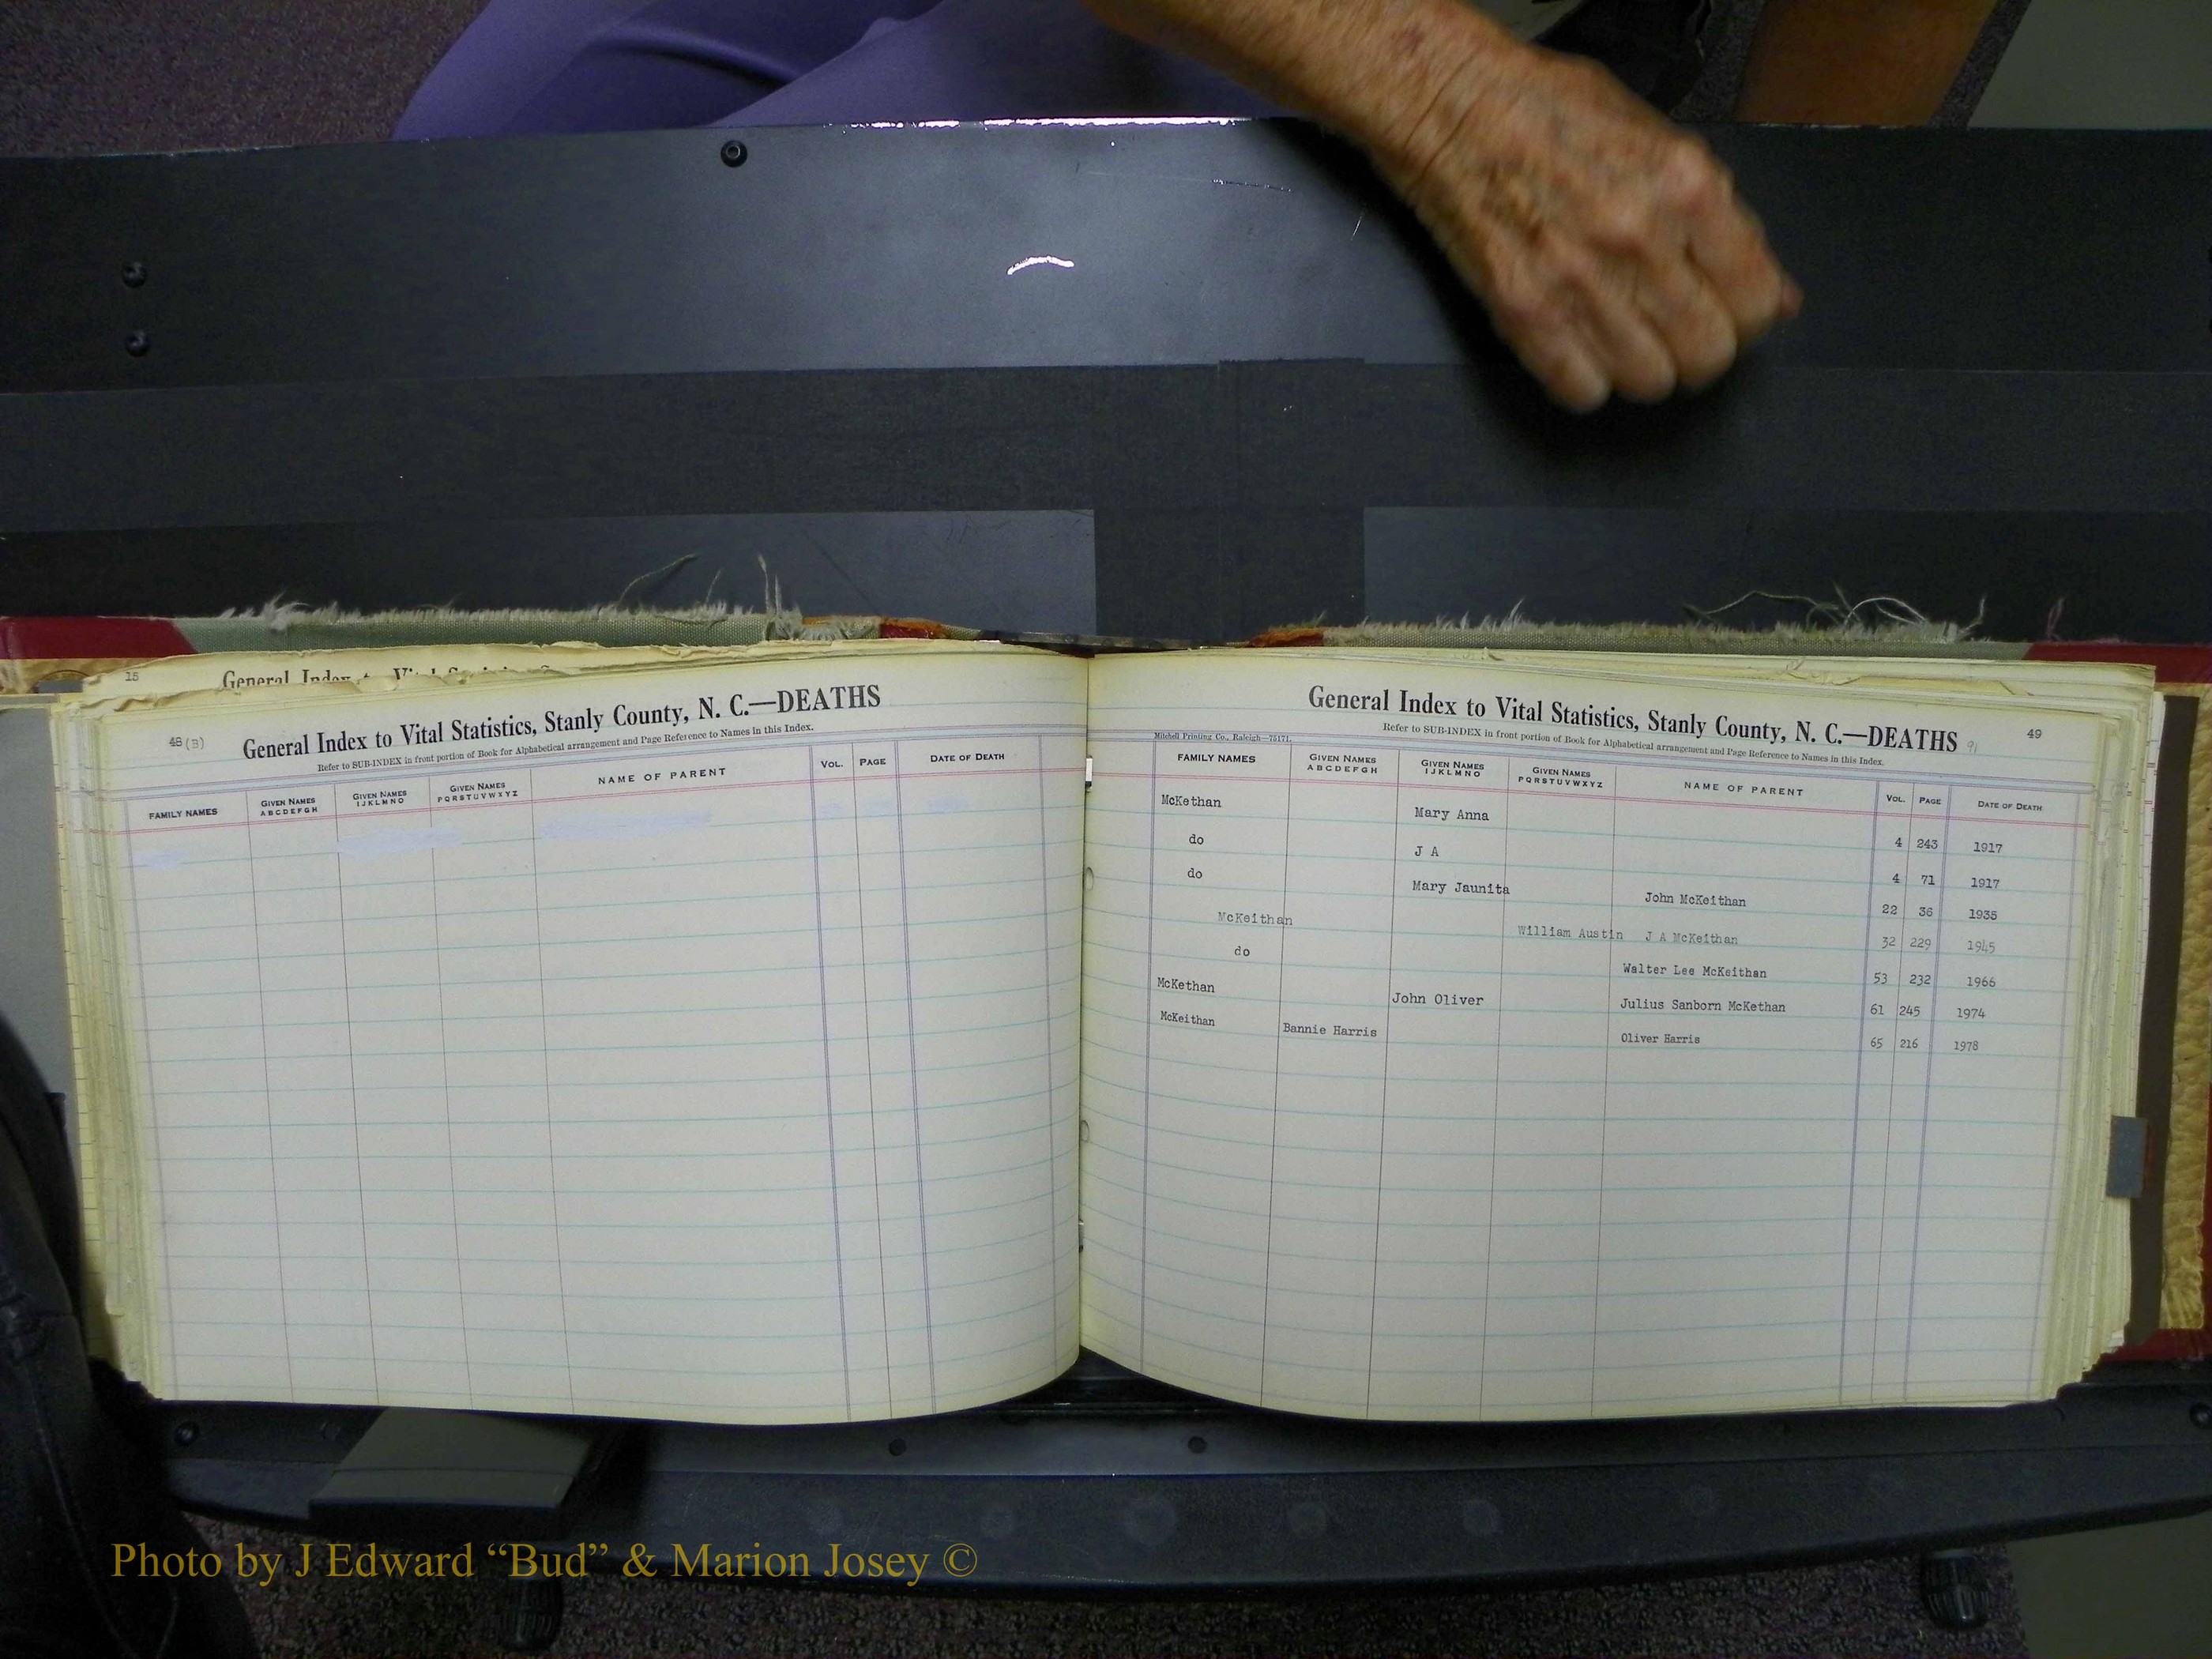 15
General Index to Vital Statistics
48(B)
General Index to Vital Statistics, Stanly County, N. C.—DEATHS
Refer to SUB-INDEX in front portion of Book for Alphabetical arrangement and Page Reference to Names in this Index.
FAMILY NAMES GIVEN NAMES ABCDEFGH GIVEN NAMES IJKLMNO GIVEN NAMES PQRSTUVWXYZ NAME OF PARENT VOL. PAGE DATE OF DEATH
General Index to Vital Statistics, Stanly County, N. C.—DEATHS 91 49
Refer to SUB-INDEX in front portion of Book for Alphabetical arrangement and Page Reference to Names in this Index.
Mitchell Printing Co., Raleigh—75171.
FAMILY NAMES GIVEN NAMES ABCDEFGH GIVEN NAMES IJKLMNO GIVEN NAMES PQRSTUVWXYZ NAME OF PARENT VOL. PAGE DATE OF DEATH
McKethan Mary Anna 4 243 1917
do J A 4 71 1917
do Mary Jaunita John McKeithan 22 36 1935
McKeithan William Austin J A McKeithan 32 229 1945
do Walter Lee McKeithan 53 232 1966
McKethan John Oliver Julius Sanborn McKethan 61 245 1974
McKeithan Bannie Harris Oliver Harris 65 216 1978
Photo by J Edward “Bud” & Marion Josey ©